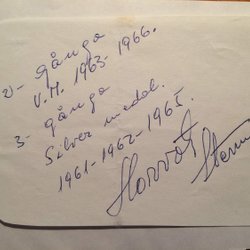 2 - gånga
V.M. 1963 - 1966.
3 - gånga
Silver medel.
1961 - 1962 - 1965.
Horvat